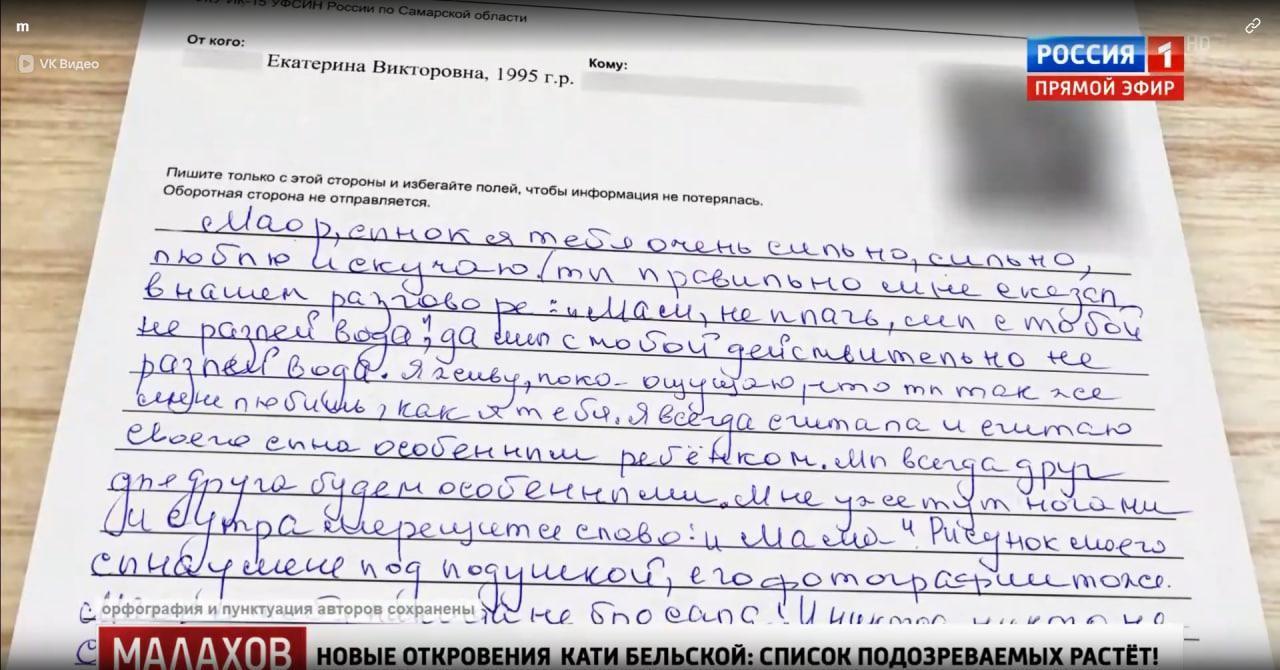 m
VK Видео
ИК-15 УФСИН России по Самарской области
РОССИЯ 1 HD
ПРЯМОЙ ЭФИР
От кого:
Екатерина Викторовна, 1995 г.р.
Кому:
Пишите только с этой стороны и избегайте полей, чтобы информация не потерялась.
Оборотная сторона не отправляется.
Маор, сынок я тебя очень сильно, сильно,
люблю и скучаю! ты правильно мне сказал
в нашем разговоре: „Мам, не плачь, мы с тобой
не разлей вода", да мы с тобой действительно не
разлей вода. Я живу, пока ощущаю, что ты так же
меня любишь, как я тебя. Я всегда считала и считаю
своего сына особенным ребёнком. Мы всегда друг
для друга будем особенными. Мне уже тут ночами
и с утра мерещится слово: „Мама". Рисунок моего
сына у меня под подушкой, его фотографии тоже.
не бросала! И никто никто не
орфография и пунктуация авторов сохранены
МАЛАХОВ
НОВЫЕ ОТКРОВЕНИЯ КАТИ БЕЛЬСКОЙ: СПИСОК ПОДОЗРЕВАЕМЫХ РАСТЁТ!